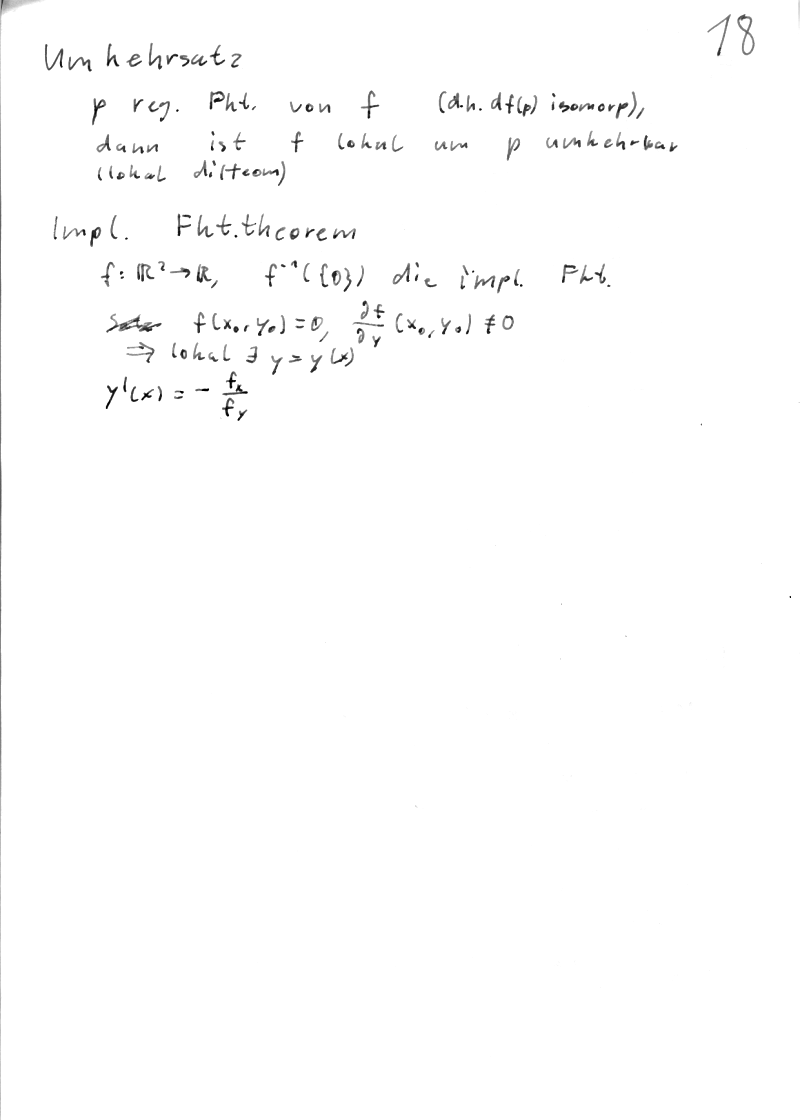 18
Umkehrsatz
p reg. Pkt. von f (d.h. df(p) isomorp),
dann ist f lokal um p umkehrbar
(lokal diffeom)
Impl. Fkt.theorem
f: ℝ² → ℝ, f⁻¹({0}) die impl. Fkt.
f(x₀, y₀) = 0, ∂f/∂y (x₀, y₀) ≠ 0
⇒ lokal ∃ y = y(x)
y'(x) = - fₓ/f_y